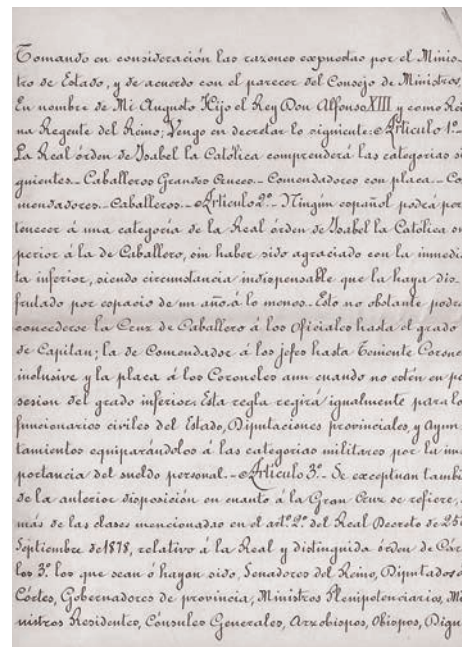 Tomando en consideración las razones expuestas por el Minis-
tro de Estado, y de acuerdo con el parecer del Consejo de Ministros,
En nombre de Mi Augusto Hijo el Rey Don Alfonso XIII y como Rei
na Regente del Reino; Vengo en decretar lo siguiente: Artículo 1º-
La Real órden de Isabel la Católica comprenderá las categorias si
guientes- Caballeros Grandes Cruces- Comendadores con placa- Co
mendadores- Caballeros- Artículo 2º- Ningun español podrá per
tenecer á una categoría de la Real órden de Isabel la Católica su
perior á la de Caballero, sin haber sido agraciado con la inmedia
ta inferior, siendo circunstancia indispensable que la haya dis-
frutado por espacio de un año á lo menos- Esto no obstante podrá
concederse la Cruz de Caballero á los Oficiales hasta el grado
de Capitan; la de Comendador á los jefes hasta Teniente Coronel
inclusive y la placa á los Coroneles aun cuando no estén en po
sesion del grado inferior. Esta regla regirá igualmente para lo
funcionarios civiles del Estado, Diputaciones provinciales, y Ayun
tamientos equiparándolos á las categorias militares por la im
portancia del sueldo personal.- Artículo 3º- Se exceptuan tambi
de la anterior disposición en cuanto á la Gran Cruz se refiere,
más de las clases mencionadas en el artº 2º del Real Decreto de 25
Septiembre de 1878, relativo á la Real y distinguida órden de Cár
los 3º los que sean ó hayan sido, Senadores del Reino, Diputados á
Córtes, Gobernadores de provincia, Ministros Plenipotenciarios, Mi
nistros Residentes, Cónsules Generales, Arzobispos, Obispos, Dign